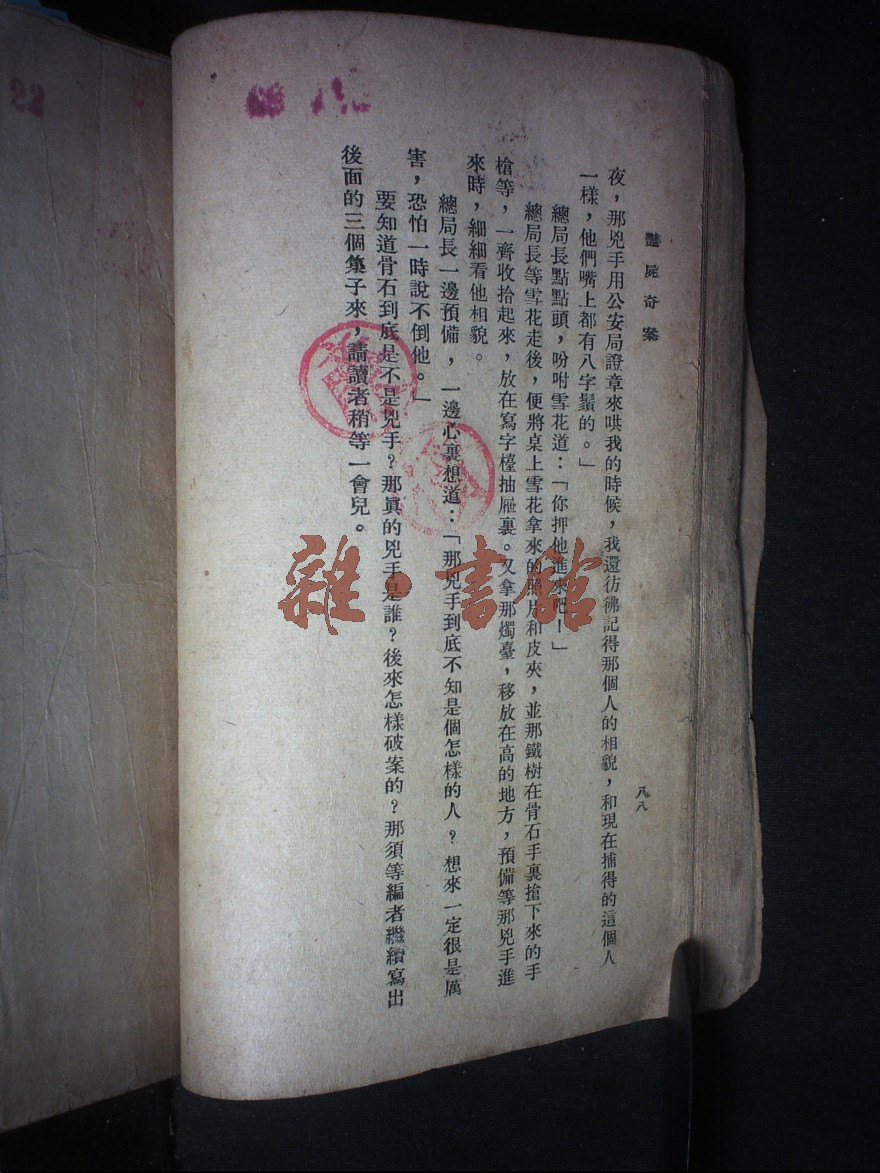 豔屍奇案
八八
夜，那兇手用公安局證章來哄我的時候，我還彷彿記得那個人的相貌，和現在捕得的這個人
一樣，他們嘴上都有八字鬚的。」
總局長點點頭，吩咐雪花道：「你押他進來吧！」
總局長等雪花走後，便將桌上雪花拿來的照片和皮夾，並那鐵樹在骨石手裏搶下來的手
槍等，一齊收拾起來，放在寫字檯抽屜裏。又拿那燭臺，移放在高的地方，預備等那兇手進
來時，細細看他相貌。
總局長一邊預備，一邊心裏想道：「那兇手到底不知是個怎樣的人？想來一定很是厲
害，恐怕一時說不倒他。」
要知道骨石到底是不是兇手？那眞的兇手是誰？後來怎樣破案的？那須等編者繼續寫出
後面的三個集子來，請讀者稍等一會兒。
雜·書館